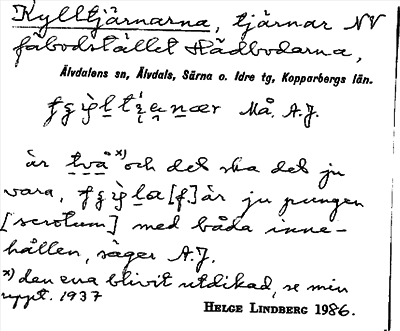 Kylltjärnarna, tjärnar NV
fäbodstället Rädbodarna,
Älvdalens sn, Älvdals, Särna o. Idre tg, Kopparbergs län.
Må. A.J.
är två x) och det ska det ju
vara, [f.] är ju pungen
[scrotum] med båda inne-
hållen, säger A.J.
x) den ena blivit utdikad, se min
uppt. 1937
HELGE LINDBERG 1986.